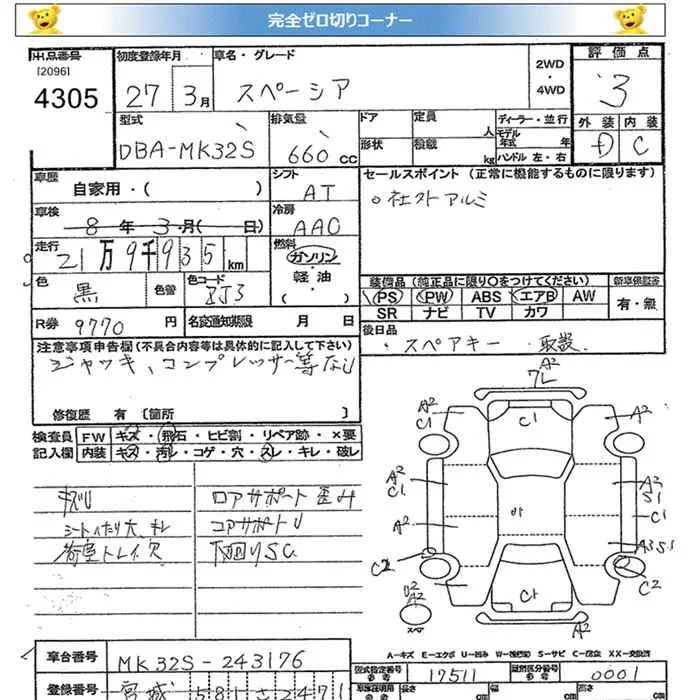 完全ゼロ切りコーナー
出品番号 初度登録年月 車名・グレード 2WD ・ 4WD 評価点
[2096]
4305 27 3月 スペーシア 3
型式 排気量 ドア 定員 人 ディーラー・並行 外装 内装
DBA-MK32S 660 cc 形状 積載 kg モデル年式 年 ハンドル 左・右 D C
車歴 自家用・( ) シフト AT セールスポイント(正常に機能するものに限ります)
車検 8年 3月( 日) 冷房 AAC ○社外アルミ
走行 21万9千935km 燃料 ガソリン・軽油・( )
色 黒 色替 色コード ZJ3 装備品(純正品に限り○をつけてください) 新車保証書
PS PW ABS エアB AW 有・無
SR ナビ TV カワ
R券 9770円 名変通知期限 月 日 後日品
注意事項申告欄(不具合内容等は具体的に記入して下さい) ・スペアキー・取説
ジャッキ、コンプレッサー等なし
修復歴 有〔箇所 〕
検査員 FW キズ・飛石・ヒビ割・リペア跡・×要
記入欄 内装 キズ・汚レ・コゲ・穴・スレ・キレ・破レ
キズU ロアサポート歪み
シートへたり大、キレ コアサポートU
荷室トレイ穴 下回りSC
A2
7L
A2 C1 C1 A2
A2 C1 A3 S1
A2 C1
A3S1
C2 C1 C2
A2
スペア A2
A-キズ E-エクボ U-凹み W-補修跡 S-サビ C-腐食 XX-交換済
車台番号 MK32S-243176 型式指定番号 参考 17511 類別区分番号 参考 0001
登録番号 宮城 581 さ 2471 長さ cm 幅 cm 高さ cm